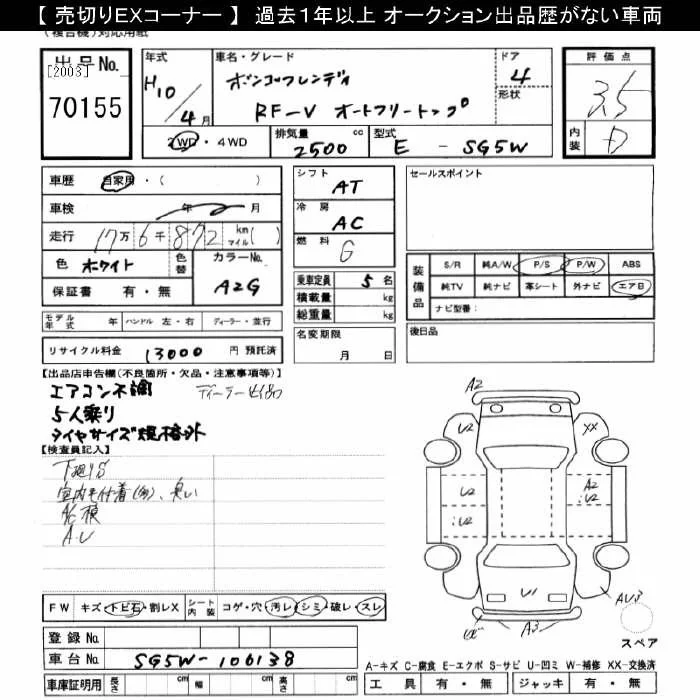 【 売切りEXコーナー 】 過去１年以上 オークション出品歴がない車両
(複合機)対応用紙
出 品 No.
[2003]
70155
年式 H10/4月
車名・グレード ボンゴフレンディ
RF-V オートフリートップ
ドア 4
形状
評 価 点 3.5
内装 D
2WD ・ 4WD
排気量 2500 cc
型式 E - SG5W
車歴 自家用・( )
車検 年 月
走行 17万 6千 872 km マイル( )
色 ホワイト 色替 カラーNo. A2G
保証書 有 ・ 無
モデル年式 年 ハンドル 左・右 ディーラー・並行
リサイクル料金 13000 円 預託済
シフト AT
冷房 AC
燃料 G
乗車定員 5 名
積載量 kg
総重量 kg
名変期限
月 日
セールスポイント
装備品 S/R 純A/W P/S P/W ABS
純TV 純ナビ 革シート 外ナビ エアB
ナビ型番：
後日品
【出品店申告欄(不良箇所・欠品・注意事項等)】
エアコン不調
5人乗り
タイヤサイズ規格外
【検査員記入】
下廻りS
A2
U2
XX
U2
:U2
A2
:U2
U2
U1
A3
AU3
スペア
FW キズ・トビ石・割レX シート内装 コゲ・穴・汚レ・シミ・破レ・スレ
登録 No.
車台 No. SG5W-106138
車庫証明用 長さ cm 幅 cm 高さ cm
A-キズ C-腐食 E-エクボ S-サビ U-凹ミ W-補修 XX-交換済
工 具 有 ・ 無 ジャッキ 有 ・ 無